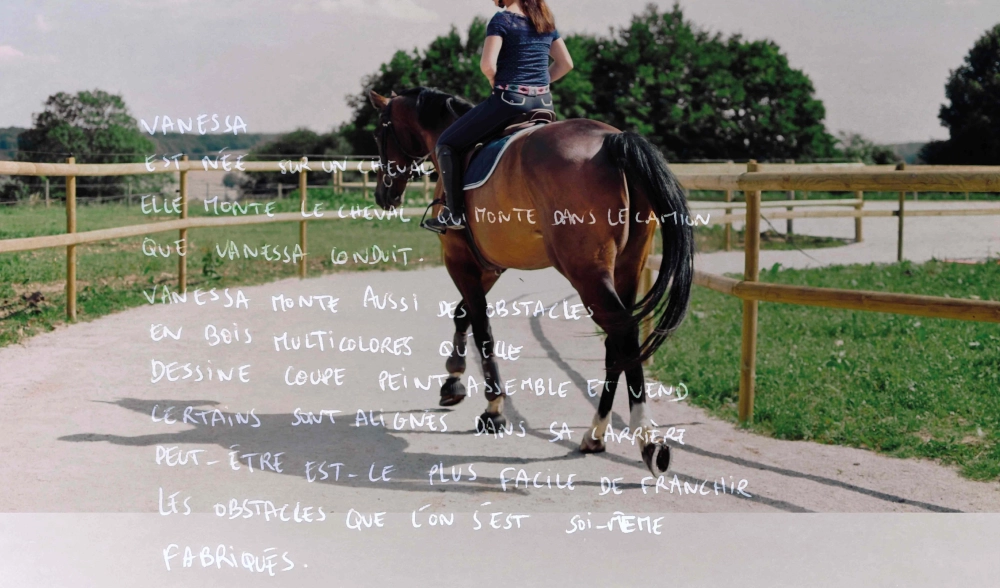 VANESSA
EST NÉE SUR UN CHEVAL
ELLE MONTE LE CHEVAL QUI MONTE DANS LE CAMION
QUE VANESSA CONDUIT.
VANESSA MONTE AUSSI DES OBSTACLES
EN BOIS MULTICOLORES QU'ELLE
DESSINE COUPE PEINT ASSEMBLE ET VEND
CERTAINS SONT ALIGNÉS DANS SA ARRIÈRE
PEUT-ÊTRE EST-CE PLUS FACILE DE FRANCHIR
LES OBSTACLES QUE L'ON S'EST SOI-MÊME
FABRIQUÉS.